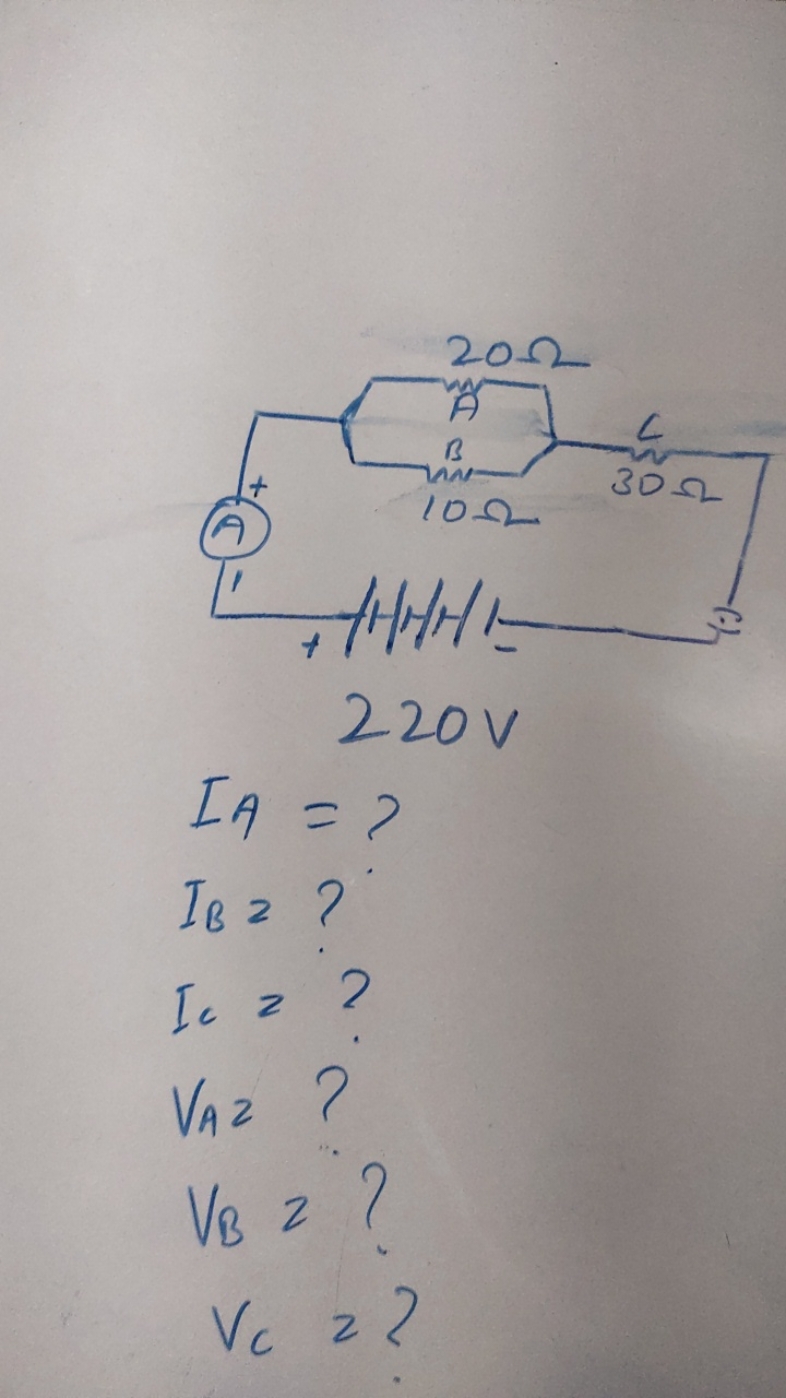 20Ω
A
B
10Ω
C
30Ω
+
A
+
-
220V
IA = ?
IB = ?
Ic = ?
VA = ?
VB = ?
Vc = ?